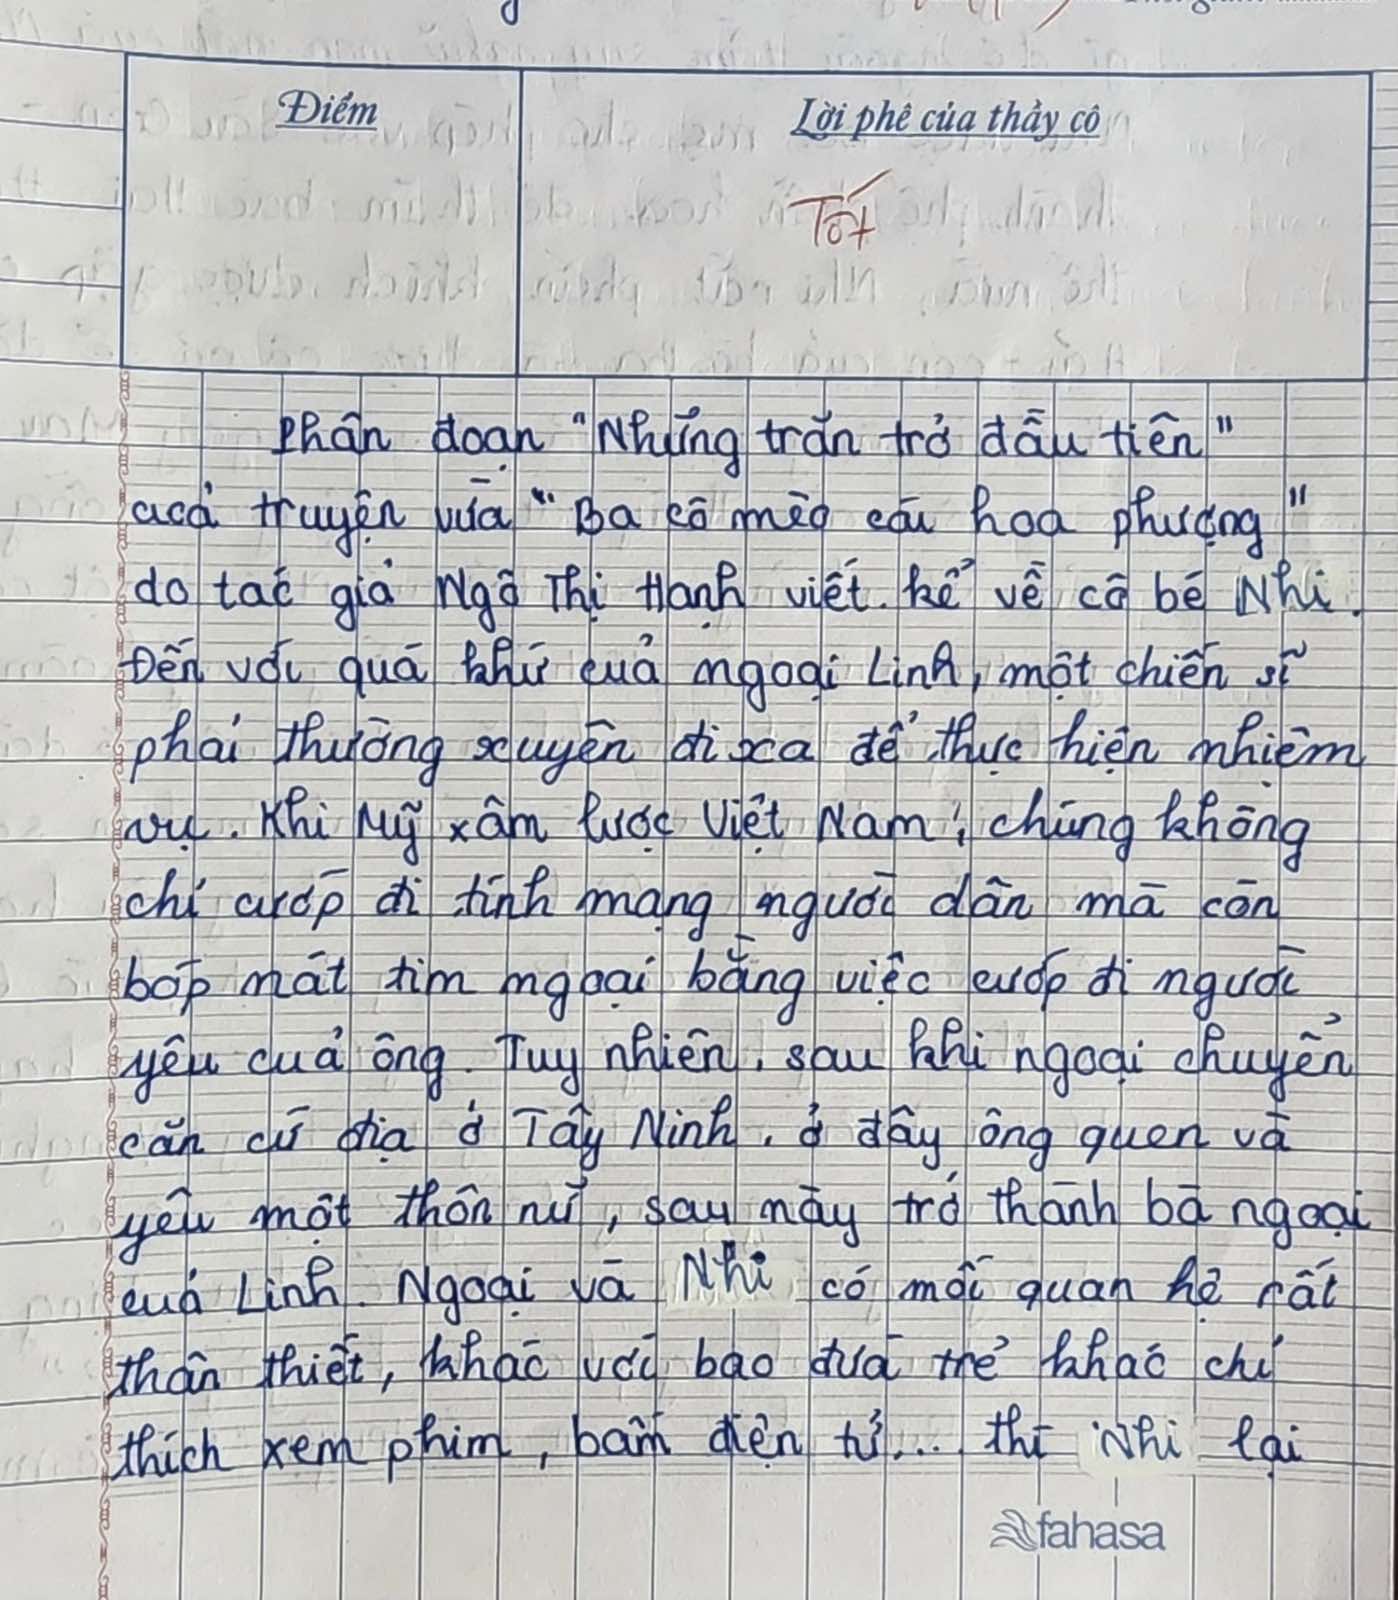 Điểm
Lời phê của thầy cô
Tốt
Phân đoạn "Những trăn trở đầu tiên"
của truyện vừa "Ba cô mèo cái hoa phượng"
do tác giả Ngô Thị Hạnh viết. kể về cô bé Nhi.
Đến với quá khứ của ngoại Linh, một chiến sĩ
phải thường xuyên đi xa để thực hiện nhiệm
vụ. Khi Mỹ xâm lược Việt Nam, chúng không
chỉ cướp đi tính mạng người dân mà còn
bóp mát tim ngoại bằng việc cướp đi người
yêu của ông. Tuy nhiên, sau khi ngoại chuyển
căn cứ địa ở Tây Ninh, ở đây ông quen và
yêu một thôn nữ, sau này trở thành bà ngoại
của Linh. Ngoại và Nhi có mối quan hệ rất
thân thiết, khác với bao đứa trẻ khác chỉ
thích xem phim, bấm điện tử... thì Nhi lại
fahasa